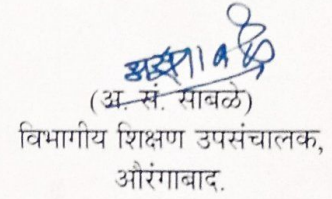 (अ. सं. साबळे)
विभागीय शिक्षण उपसंचालक,
औरंगाबाद.